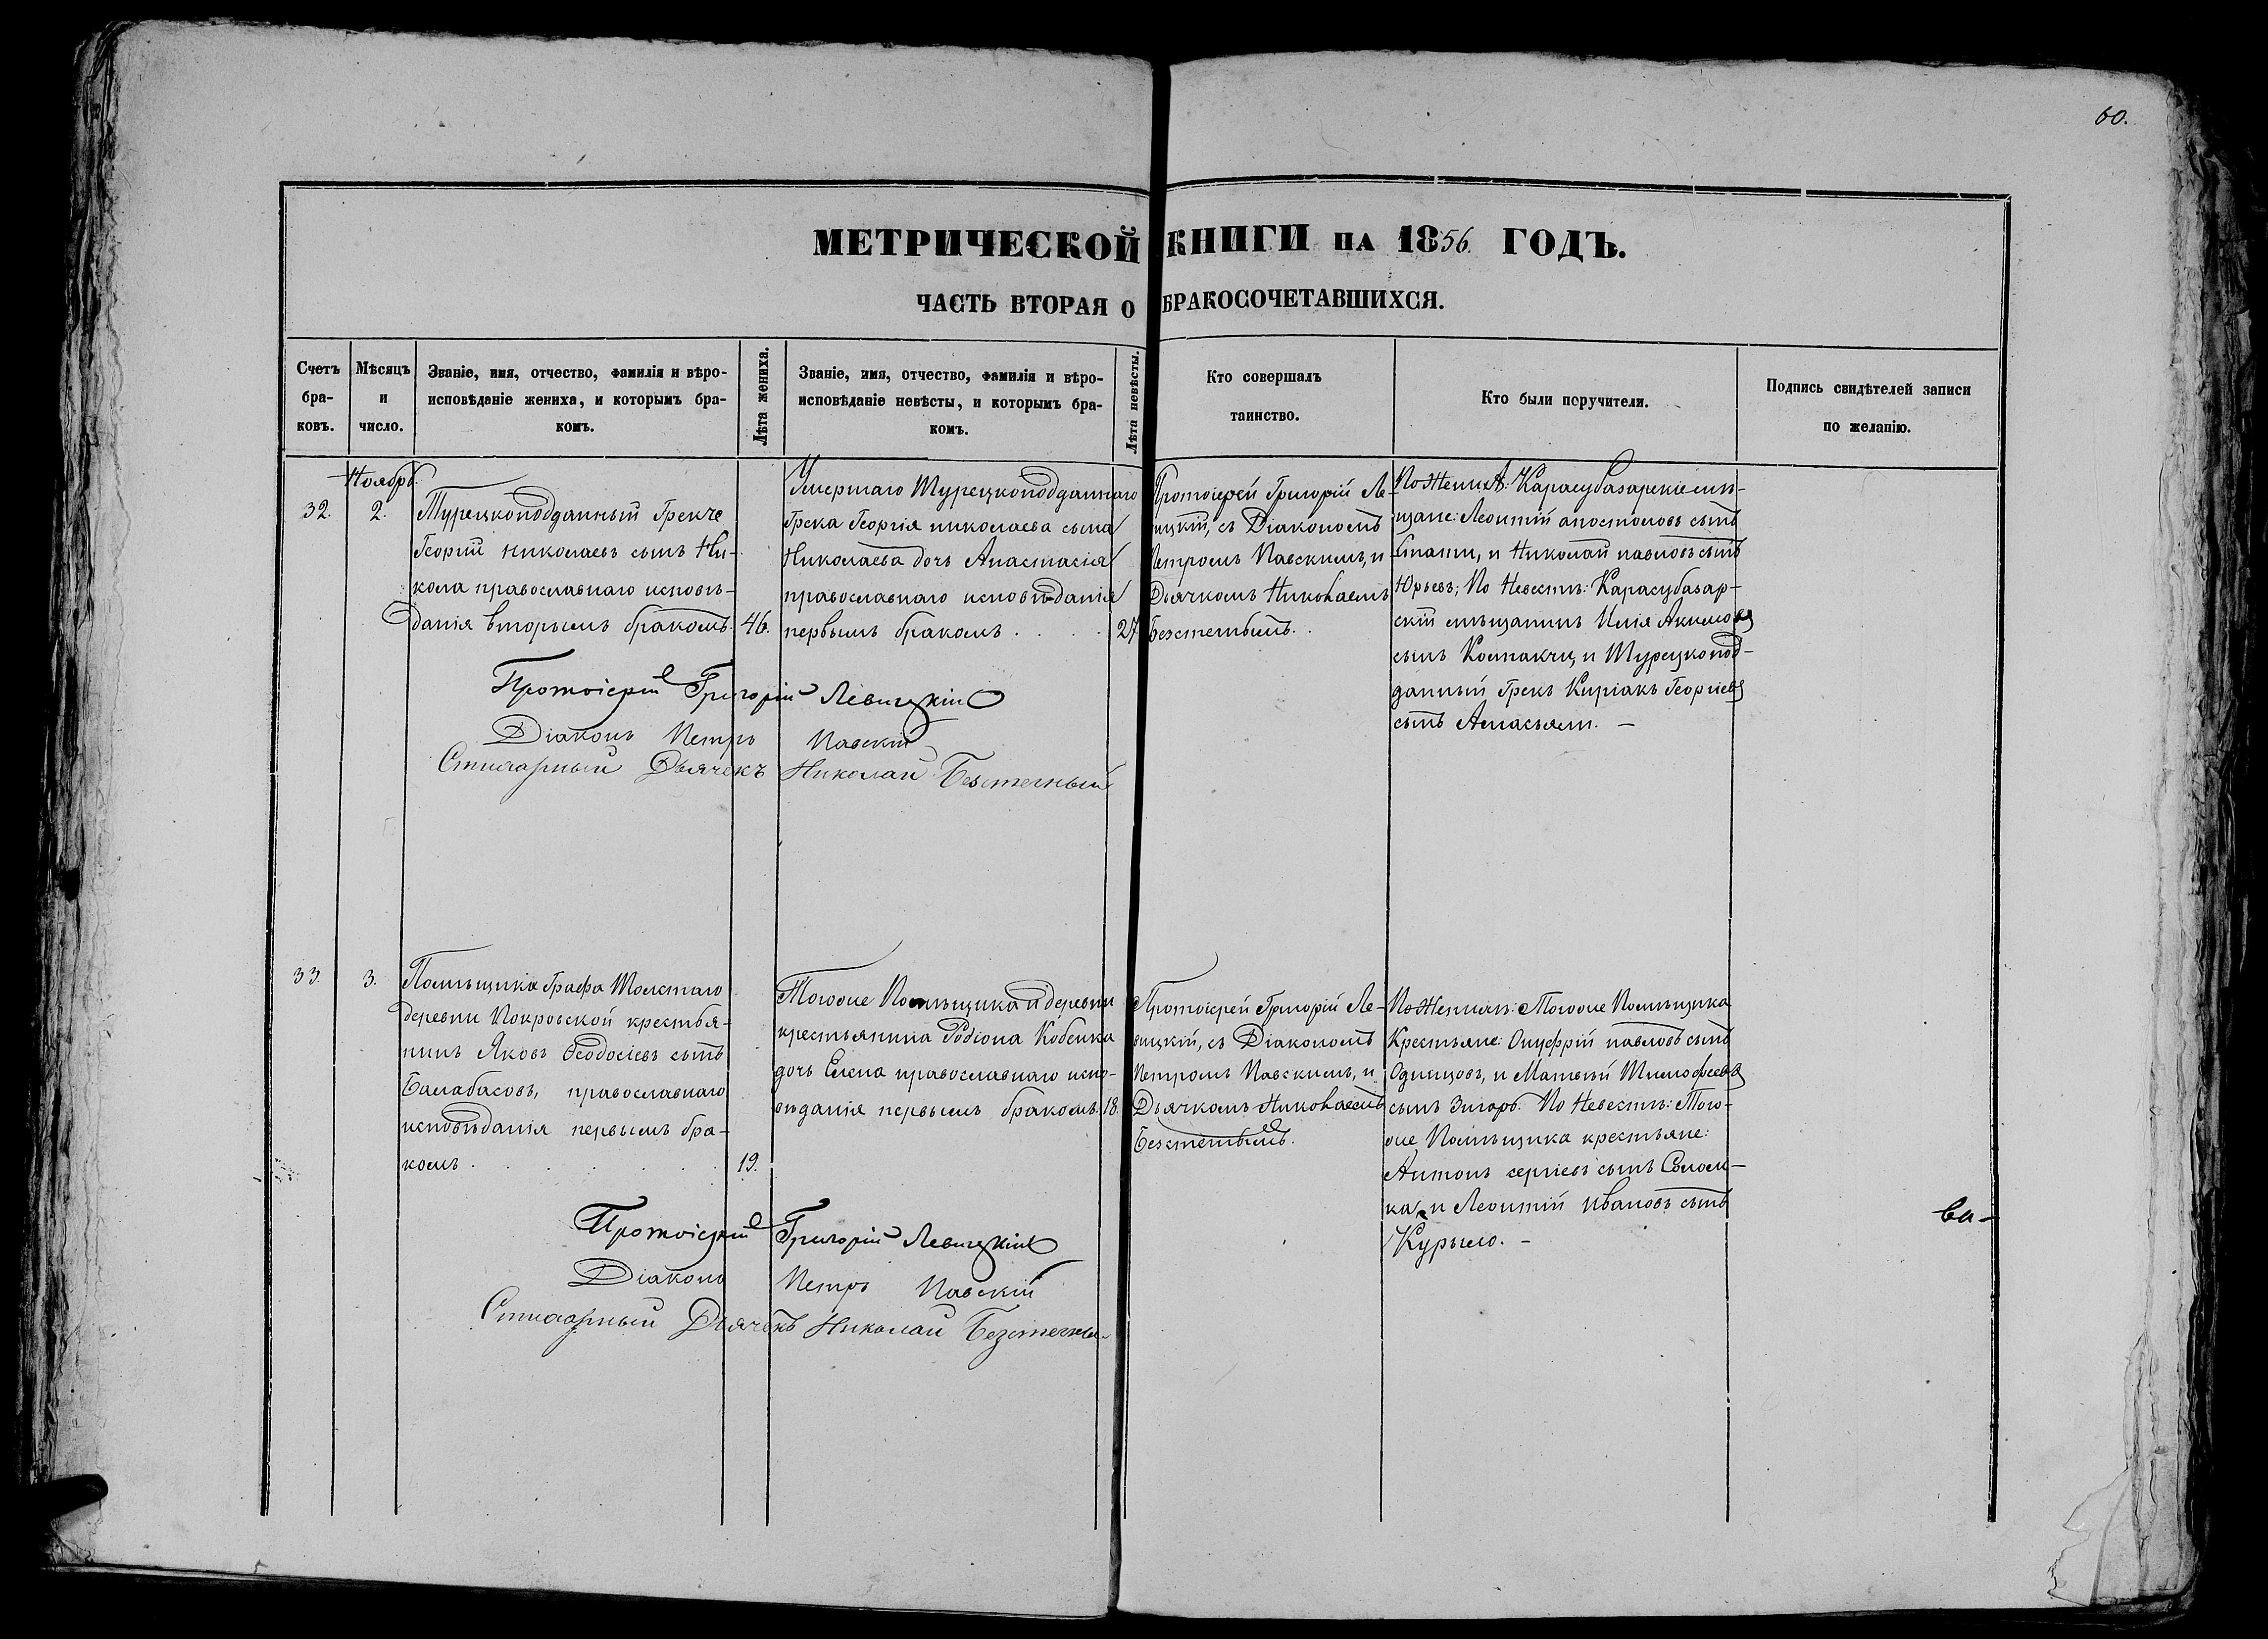 60.
МЕТРИЧЕСКОЙ КНИГИ НА 1856. ГОДЪ.
ЧАСТЬ ВТОРАЯ О БРАКОСОЧЕТАВШИХСЯ.
Счетъ
бра-
ковъ.
Мѣсяцъ
и
число.
Званіе, имя, отчество, фамилія и вѣро-
исповѣданіе жениха, и которымъ бра-
комъ.
Лѣта жениха.
Званіе, имя, отчество, фамилія и вѣро-
исповѣданіе невѣсты, и которымъ бра-
комъ.
Лѣта невѣсты.
Кто совершалъ
таинство.
Кто были поручители.
Подпись свидѣтелей записи
по желанію.
32.
Ноябрь.
2.
Турецкоподданный Грекъ
Георгій николаевъ сынъ Ни-
кола православнаго исповѣ-
данія вторымъ бракомъ.
46.
Умершаго Турецкоподданнаго
Грека Георгія николаева сына
Николаева дочь Анастасія
православнаго исповѣданія
первымъ бракомъ . . .
27
Протоіерей Григорій Ле-
вицкій, съ Діакономъ
Петромъ Павскимъ, и
Дьячкомъ Николаемъ
По Женихѣ: Карасубазарскіе мѣ-
щане: Леонтій апостоловъ сынъ
Спати, и Николай павловъ сынъ
Юрьевъ; По Невестѣ: Карасубазар-
скій мѣщанинъ Илія Акимовъ
сынъ и Турецкопод-
данный Грекъ Киріакъ Георгіевъ
сынъ
Протоіерей Григорій Левицкій
Діаконъ Петръ Павскій
Стихарный Дьячекъ Николай
33.
3.
Помѣщика Графа Толстаго
деревни Покровской крестья-
нинъ Яковъ Ѳеодосіевъ сынъ
Балабасовъ, православнаго
исповѣданія первымъ бра-
комъ . . . . .
19.
Тогоже Помѣщика и деревни
крестьянина Родіона Кобенка
дочь Елена православнаго испо-
вѣданія первымъ бракомъ.
18.
Протоіерей Григорій Ле-
вицкій, съ Діакономъ
Петромъ Павскимъ, и
Дьячкомъ Николаемъ
По Женихѣ: Тогоже Помѣщика
Крестьяне: Онуфрій павловъ сынъ
Одинцовъ, и Матвѣй Тимофеевъ
сынъ По Невестѣ: Того-
же Помѣщика крестьяне:
Антонъ сергіевъ сынъ Солом-
ка, и Леонтій ивановъ сынъ
Курыло. -
Протоіерей Григорій Левицкій
Діаконъ Петръ Павскій
Стихарный Дьячекъ Николай